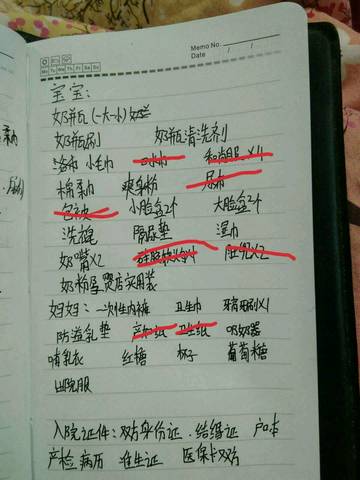 Memo No.
Mo Tu We Th Fr Sa Su
Date / /
宝宝:
奶瓶(一大一小)
奶瓶刷 奶瓶清洗剂
浴巾 小毛巾 口水巾 和尚服X4
棉柔巾 爽身粉 尿布
包被 小脸盆2个 大脸盆2个
洗屁 隔尿垫 湿巾
奶嘴X2 硅胶软勺X1 肚兜X2
奶粉母婴店买用装
妈妈: 一次性内裤 卫生巾 牙刷X1
防溢乳垫 产妇纸 卫生纸 吸奶器
哺乳衣 红糖 杯子 葡萄糖
出院服
入院证件: 双方身份证、结婚证 户口本
产检病历 准生证 医保卡双方